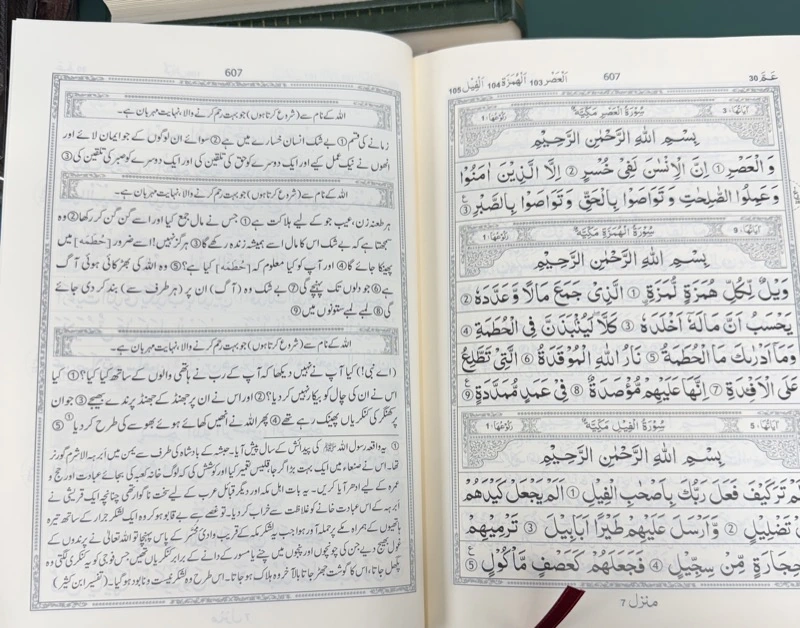 عَمَّ 30 607 اَلْعَصْر 103 اَلْهُمَزَة 104 اَلْفِيل 105
اٰيَاتُهَا: 3 سُوْرَةُ الْعَصْرِ مَكِّيَّةٌ رُكُوْعُهَا: 1
بِسْمِ اللّٰهِ الرَّحْمٰنِ الرَّحِيْمِ
وَ الْعَصْرِ ① اِنَّ الْاِنْسٰنَ لَفِيْ خُسْرٍ ② اِلَّا الَّذِيْنَ اٰمَنُوْا
وَعَمِلُوا الصّٰلِحٰتِ وَتَوَاصَوْا بِالْحَقِّ وَتَوَاصَوْا بِالصَّبْرِ ③
اٰيَاتُهَا: 9 سُوْرَةُ الْهُمَزَةِ مَكِّيَّةٌ رُكُوْعُهَا: 1
بِسْمِ اللّٰهِ الرَّحْمٰنِ الرَّحِيْمِ
وَيْلٌ لِّكُلِّ هُمَزَةٍ لُّمَزَةٍ ① الَّذِيْ جَمَعَ مَالًا وَّعَدَّدَهٗ ②
يَحْسَبُ اَنَّ مَالَهٗٓ اَخْلَدَهٗ ③ كَلَّا لَيُنْۢبَذَنَّ فِى الْحُطَمَةِ ④
وَمَآ اَدْرٰىكَ مَا الْحُطَمَةُ ⑤ نَارُ اللّٰهِ الْمُوْقَدَةُ ⑥ الَّتِيْ تَطَّلِعُ
عَلَى الْاَفْـِٕدَةِ ⑦ اِنَّهَا عَلَيْهِمْ مُّؤْصَدَةٌ ⑧ فِيْ عَمَدٍ مُّمَدَّدَةٍ ⑨
اٰيَاتُهَا: 5 سُوْرَةُ الْفِيْلِ مَكِّيَّةٌ رُكُوْعُهَا: 1
بِسْمِ اللّٰهِ الرَّحْمٰنِ الرَّحِيْمِ
اَلَمْ تَرَ كَيْفَ فَعَلَ رَبُّكَ بِاَصْحٰبِ الْفِيْلِ ① اَلَمْ يَجْعَلْ كَيْدَهُمْ
تَضْلِيْلٍ ② وَّاَرْسَلَ عَلَيْهِمْ طَيْرًا اَبَابِيْلَ ③ تَرْمِيْهِمْ
بِحِجَارَةٍ مِّنْ سِجِّيْلٍ ④ فَجَعَلَهُمْ كَعَصْفٍ مَّاْكُوْلٍ ⑤
منزل 7
607
اللہ کے نام سے (شروع کرتا ہوں) جو بہت رحم کرنے والا، نہایت مہربان ہے۔
زمانے کی قسم ① بے شک انسان خسارے میں ہے ② سوائے ان لوگوں کے جو ایمان لائے اور
انھوں نے نیک عمل کیے اور ایک دوسرے کو حق کی تلقین کی اور ایک دوسرے کو صبر کی تلقین کی ③
اللہ کے نام سے (شروع کرتا ہوں) جو بہت رحم کرنے والا، نہایت مہربان ہے۔
ہر طعنہ زن، عیب جو کے لیے ہلاکت ہے ① جس نے مال جمع کیا اور اسے گن گن کر رکھا ② وہ
سمجھتا ہے کہ بے شک اس کا مال اسے ہمیشہ زندہ رکھے گا ③ ہرگز نہیں! اسے ضرور [حُطَمَه] میں
پھینکا جائے گا ④ اور آپ کو کیا معلوم کہ [حُطَمَه] کیا ہے؟ ⑤ وہ اللہ کی بھڑکائی ہوئی آگ
ہے ⑥ جو دلوں تک پہنچے گی ⑦ بے شک وہ (آگ) ان پر (ہر طرف سے) بند کر دی جائے
گی ⑧ لمبے لمبے ستونوں میں ⑨
اللہ کے نام سے (شروع کرتا ہوں) جو بہت رحم کرنے والا، نہایت مہربان ہے۔
(اے نبی!) کیا آپ نے نہیں دیکھا کہ آپ کے رب نے ہاتھی والوں کے ساتھ کیا کیا؟ ① کیا
اس نے ان کی چال کو بیکار نہیں کر دیا؟ ② اور اس نے ان پر جھنڈ کے جھنڈ پرندے بھیجے ③ جو ان
پر کھنگر کی کنکریاں پھینک رہے تھے ④ پھر اللہ نے انھیں کھائے ہوئے بھوسے کی طرح کر دیا ⑤ ①
① یہ واقعہ رسول اللہ ﷺ کی پیدائش کے سال پیش آیا۔ حبشہ کے بادشاہ کی طرف سے یمن میں ابرہۃ الاشرم گورنر
تھا۔ اس نے صنعاء میں ایک بہت بڑا گرجا قلیس تعمیر کیا اور کوشش کی کہ لوگ خانہ کعبہ کی بجائے عبادت اور حج و
عمرہ کے لیے ادھر آیا کریں۔ یہ بات اہل مکہ اور دیگر قبائل عرب کے لیے سخت ناگوار تھی چنانچہ ایک قریشی نے
ابرہہ کے اس عبادت خانے کو غلاظت سے خراب کر دیا۔ تو غصے سے بے قابو ہو کر وہ ایک لشکر جرار کے ساتھ تیرہ
ہاتھیوں کے ہمراہ مکے پر حملہ آور ہوا جب یہ لشکر مکہ کے قریب وادی محسر کے پاس پہنچا تو اللہ تعالیٰ نے پرندوں کے
غول بھیج دیے جن کی چونچوں اور پنجوں میں چنے یا مسور کے دانے کے برابر کنکریاں تھیں جس فوجی کو یہ کنکری لگتی وہ
پگھل جاتا، اس کا گوشت جھڑ جاتا بالآخر وہ ہلاک ہو جاتا۔ اس طرح وہ لشکر نیست و نابود ہو گیا۔ (تفسیر ابن کثیر)